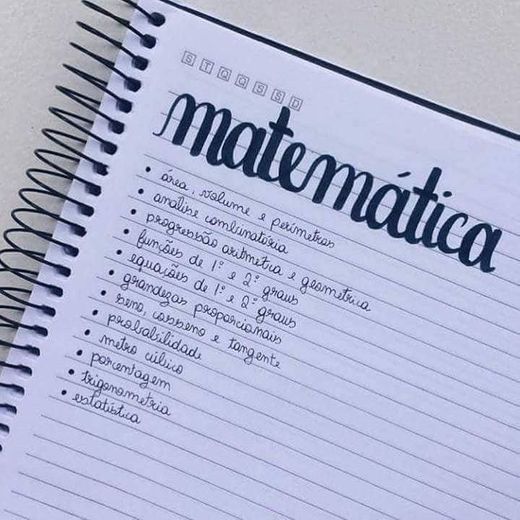 S T Q Q S S D
matemática
• área, volume e perímetros
• análise combinatória
• progressão aritmetica e geometrica
• funções de 1° e 2° graus
• equações de 1° e 2° graus
• grandezas proporcionais
• seno, cosseno e tangente
• probabilidade
• metro cúbico
• porcentagem
• trigonometria
• estatística